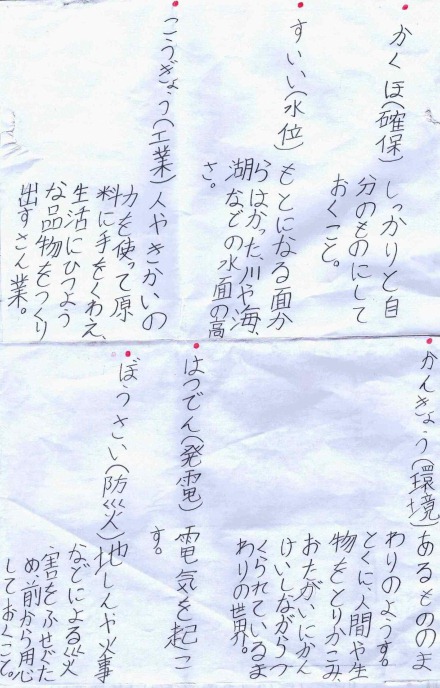 かくほ(確保)しっかりと自
分のものにして
おくこと。
すいい(水位)もとになる面か
らはかった、川や海、
湖などの水面の高
さ。
こうぎょう(工業)人やきかいの
力を使って原
料に手をくわえ、
生活にひつよう
な品物をつくり
出すさん業。
かんきょう(環境)あるもののま
わりのようす。
とくに、人間や生
物をとりかこみ、
おたがいにかん
けいしながらつ
くられているま
わりの世界。
はつでん(発電)電気を起こ
す。
ぼうさい(防災)地しんや火事
などによる災
害をふせぐた
め、前から用心
しておくこと。